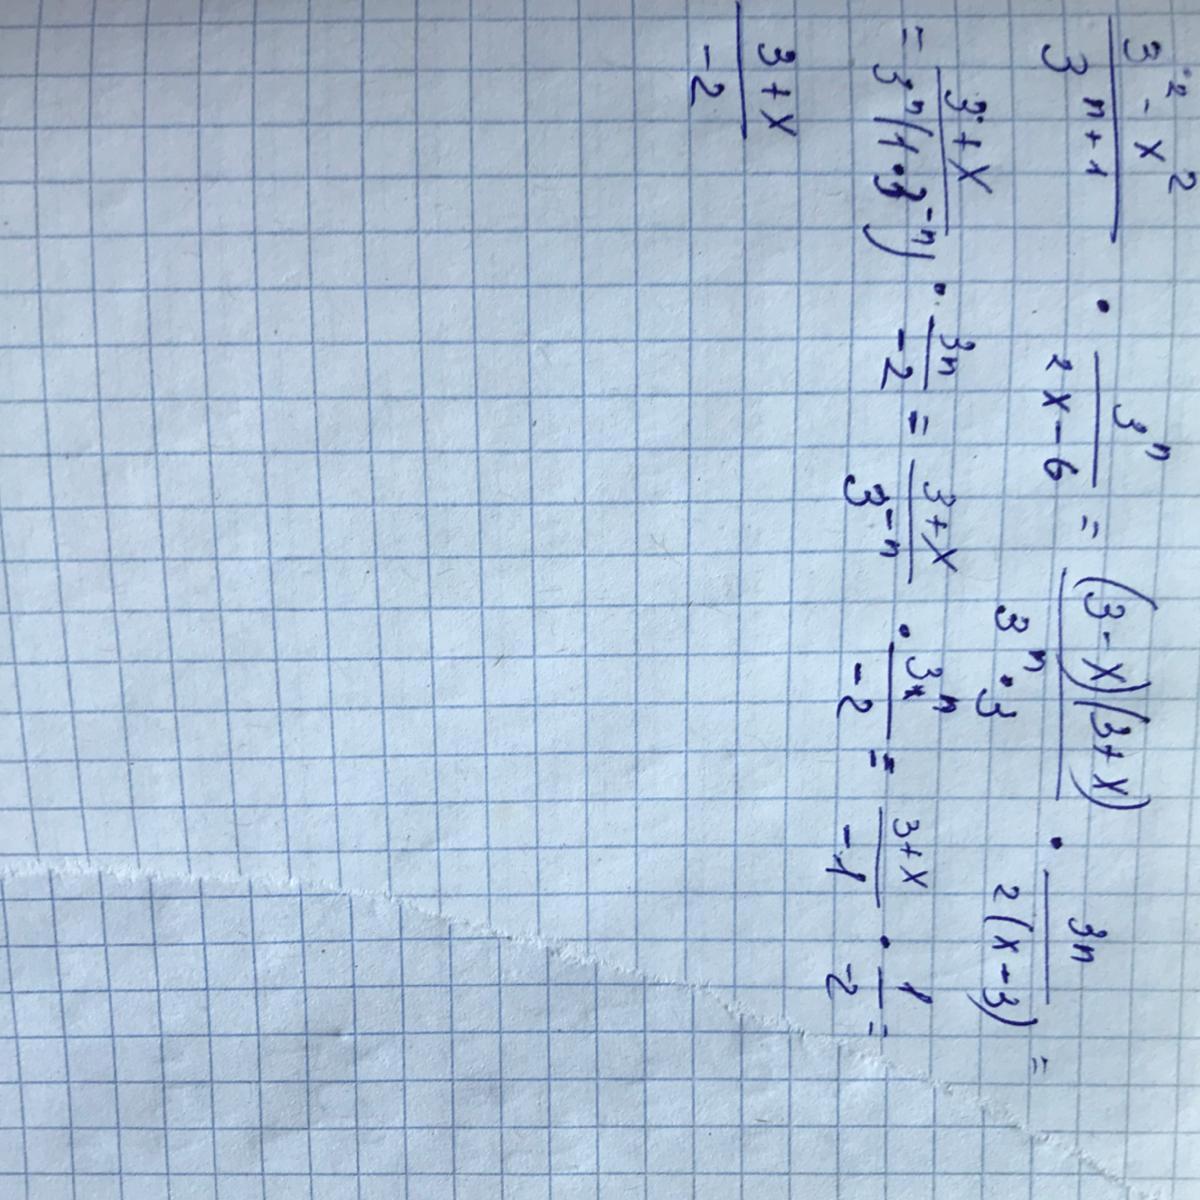 (3² - x²)/(3ⁿ⁺¹) · 3ⁿ/(2x - 6) = ((3 - x)(3 + x))/(3ⁿ · 3) · 3n/(2(x - 3)) =
= (3 + x)/(3ⁿ(1 · 3⁻ⁿ)) · 3n/-2 = (3 + x)/3⁻ⁿ · 3ⁿ/-2 = (3 + x)/-1 · 1/-2 =
(3 + x)/-2